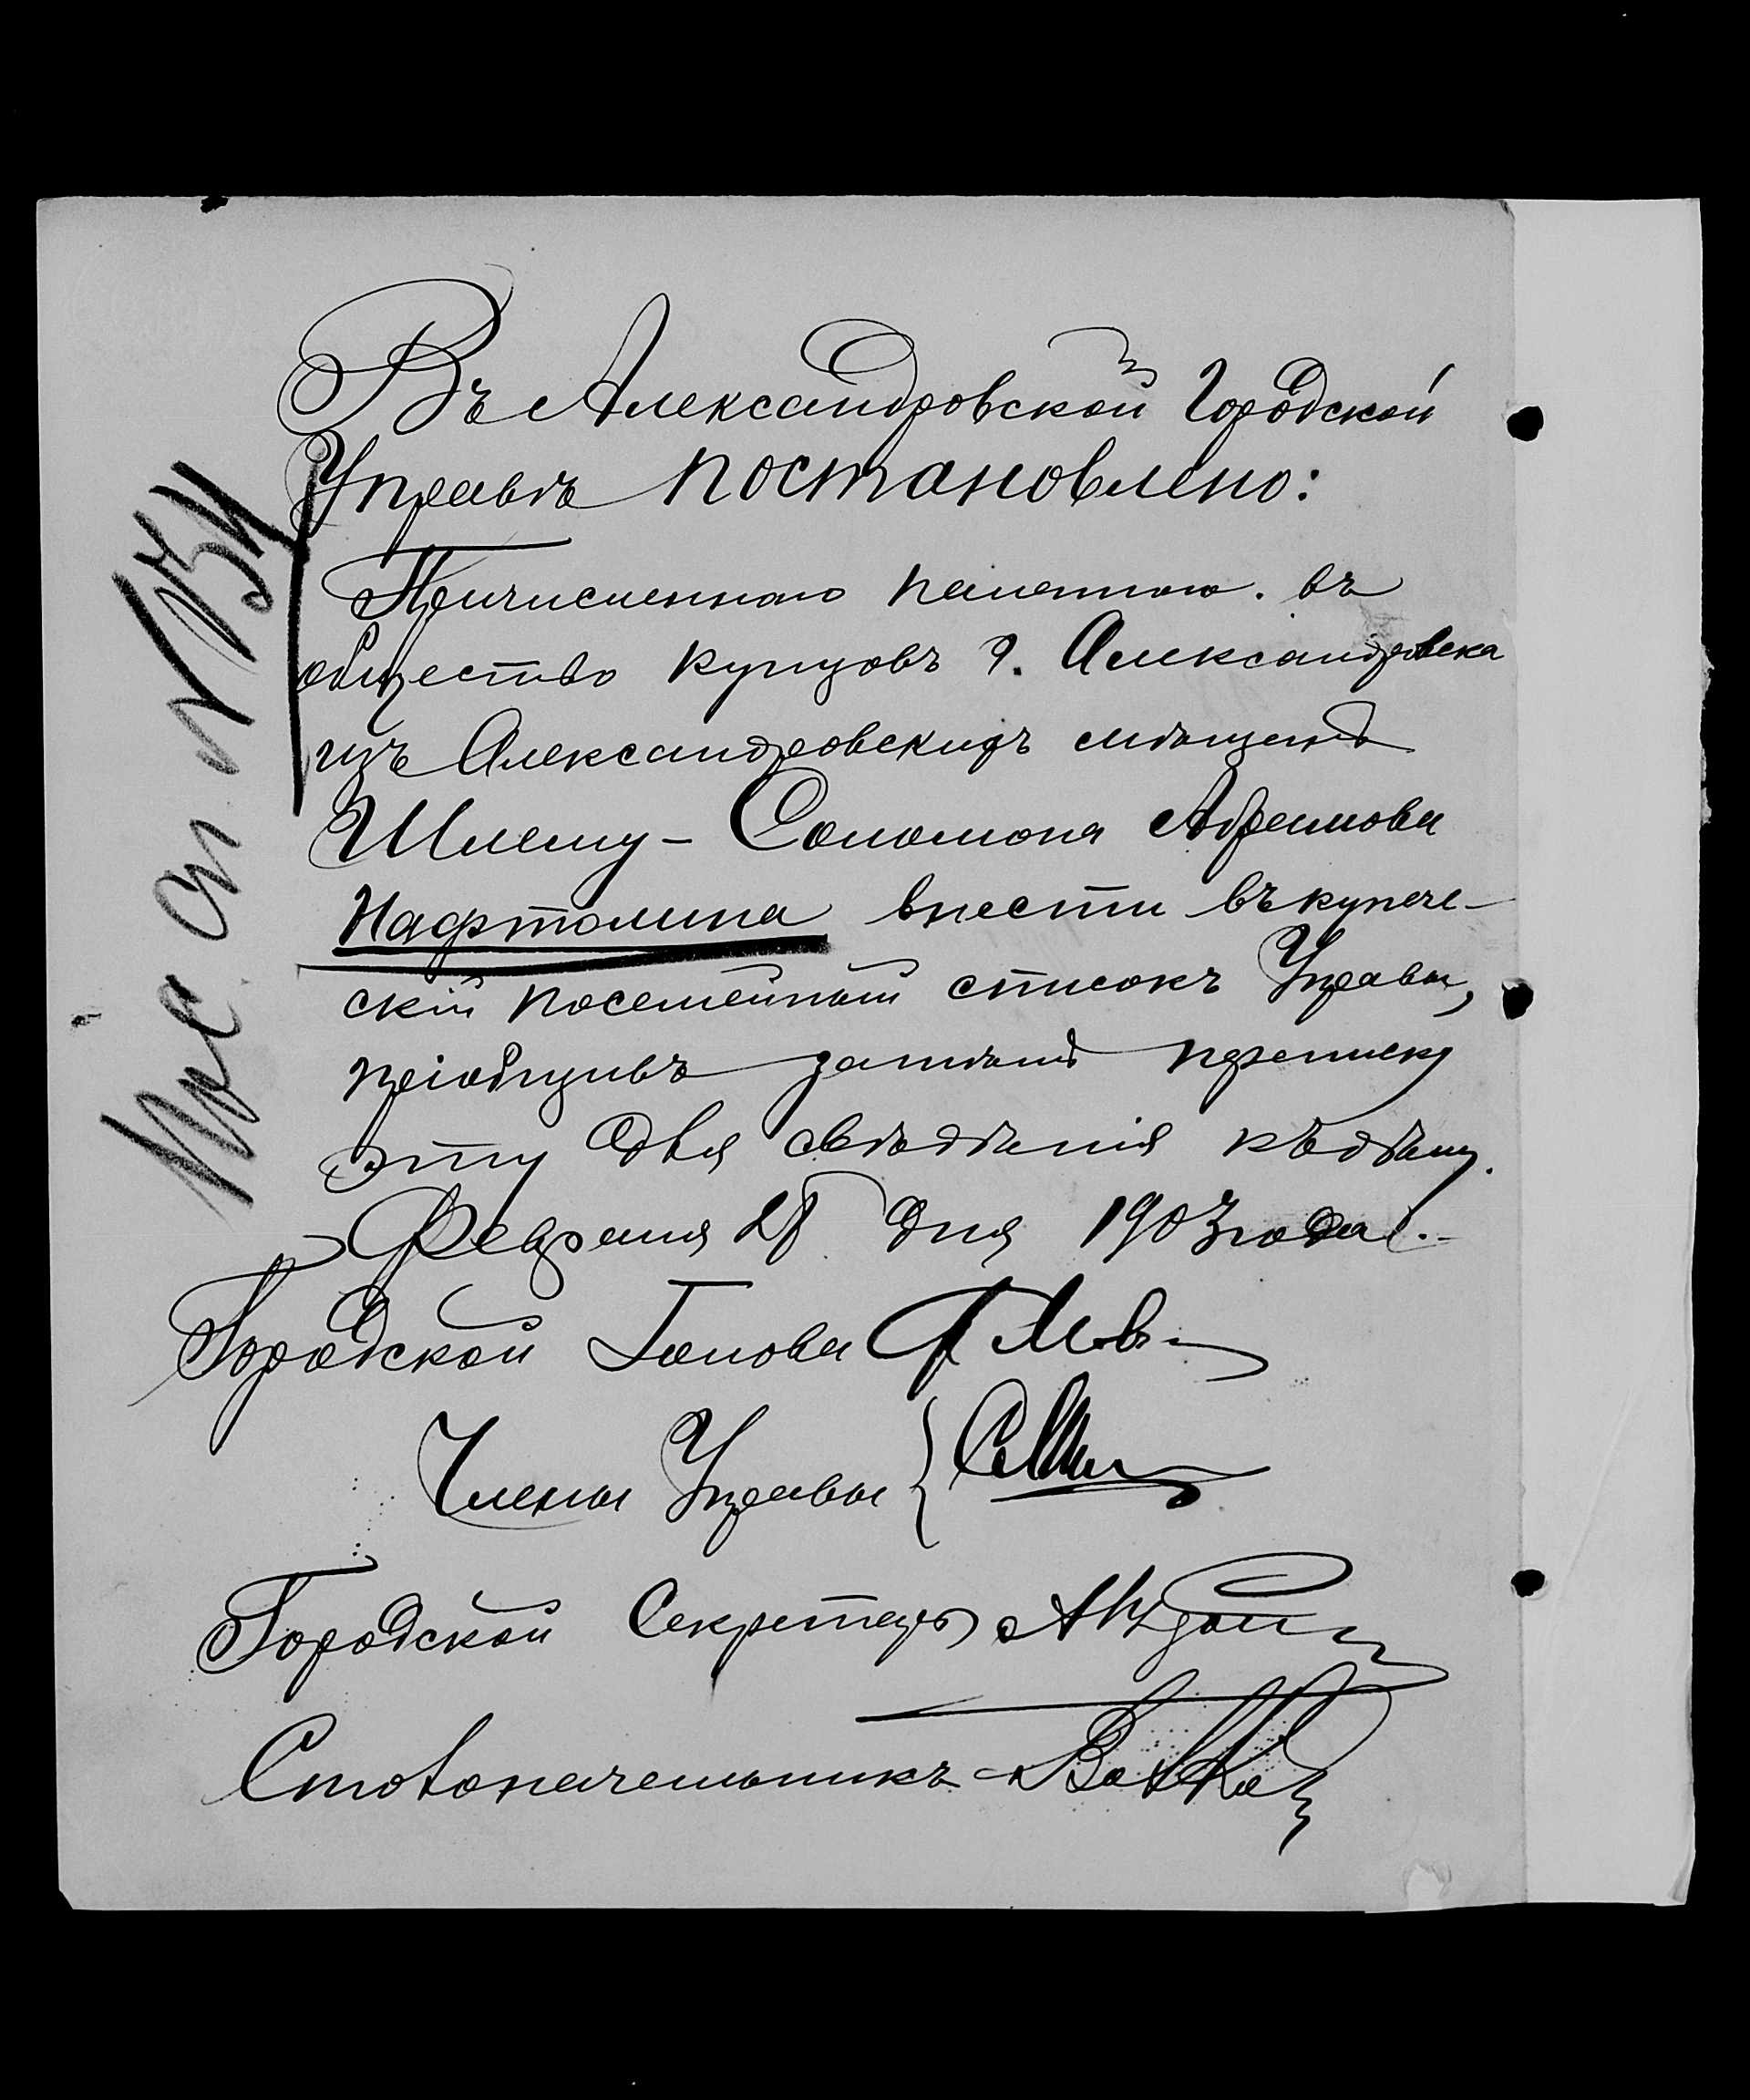 Въ Александровской Городской
Управѣ постановлено:
Причисленнаго палатою. въ
общество купцовъ г. Александровска
изъ Александровскихъ мѣщанъ
Шлему - Соломона Абрамова
Нафтолина внести въ купече-
скій посемейный списокъ Управы,
пріобщивъ затѣмъ переписку
эту для свѣдѣнія къ дѣлу.
Февраля 28 дня 1903 года.
Городской Голова
Члены Управы
Городской Секретарь
Столоначальникъ